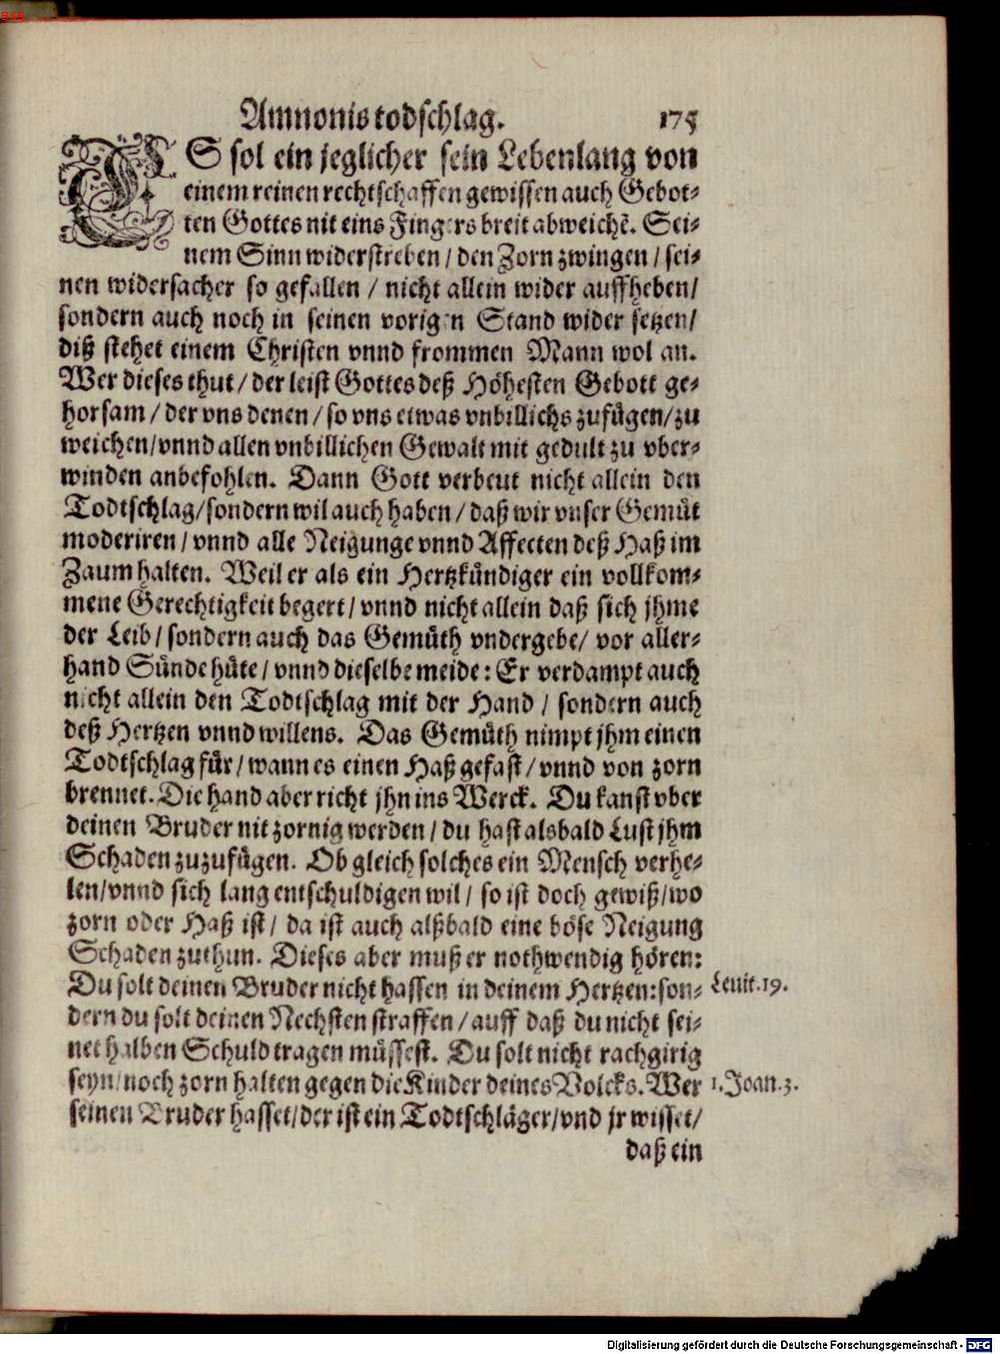 Amnonis todschlag. 175
ES sol ein jeglicher sein Lebenlang von
einem reinen rechtschaffen gewissen auch Gebot-
ten Gottes nit eins Fingers breit abweichẽ. Sei-
nem Sinn widerstreben / den Zorn zwingen / sei-
nen widersacher so gefallen / nicht allein wider auffheben /
sondern auch noch in seinen vorigen Stand wider setzen /
diß stehet einem Christen vnnd frommen Mann wol an.
Wer dieses thut / der leist Gottes deß Höhesten Gebott ge-
horsam / der vns denen / so vns etwas vnbillichs zufügen / zu
weichen / vnnd allen vnbillichen Gewalt mit gedult zu vber-
winden anbefohlen. Dann Gott verbeut nicht allein den
Todtschlag / sondern wil auch haben / daß wir vnser Gemüt
moderiren / vnnd alle Neigunge vnnd Affecten deß Haß im
Zaum halten. Weil er als ein Hertzkündiger ein vollkom-
mene Gerechtigkeit begert / vnnd nicht allein daß sich jhme
der Leib / sondern auch das Gemüth vndergebe / vor aller-
hand Sünde hüte / vnnd dieselbe meide: Er verdampt auch
nicht allein den Todtschlag mit der Hand / sondern auch
deß Hertzen vnnd willens. Das Gemüth nimpt jhm einen
Todtschlag für / wann es einen Haß gefast / vnnd von zorn
brennet. Die hand aber richt jhn ins Werck. Du kanst vber
deinen Bruder nit zornig werden / du hast alsbald Lust jhm
Schaden zuzufügen. Ob gleich solches ein Mensch verhe-
len / vnnd sich lang entschuldigen wil / so ist doch gewiß / wo
zorn oder Haß ist / da ist auch alßbald eine böse Neigung
Schaden zuthun. Dieses aber muß er nothwendig hören:
Du solt deinen Bruder nicht hassen in deinem Hertzen: son- Leuit. 19.
dern du solt deinen Nechsten straffen / auff daß du nicht sei-
net halben Schuld tragen müssest. Du solt nicht rachgirig
seyn / noch zorn halten gegen die Kinder deines Volcks. Wer 1. Joan. 3.
seinen Bruder hasset / der ist ein Todtschläger / vnd jr wisset /
daß ein
Digitalisierung gefördert durch die Deutsche Forschungsgemeinschaft - DFG